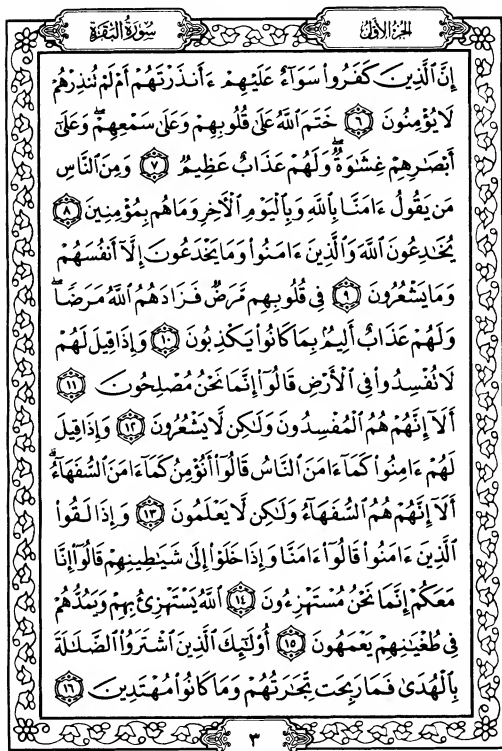 سُورَةُ البَقَرَةِ الجُزْءُ الأَوَّلُ
إِنَّ ٱلَّذِينَ كَفَرُوا۟ سَوَآءٌ عَلَيْهِمْ ءَأَنذَرْتَهُمْ أَمْ لَمْ تُنذِرْهُمْ
لَا يُؤْمِنُونَ ٦ خَتَمَ ٱللَّهُ عَلَىٰ قُلُوبِهِمْ وَعَلَىٰ سَمْعِهِمْۖ وَعَلَىٰٓ
أَبْصَٰرِهِمْ غِشَٰوَةٌۖ وَلَهُمْ عَذَابٌ عَظِيمٌ ٧ وَمِنَ ٱلنَّاسِ
مَن يَقُولُ ءَامَنَّا بِٱللَّهِ وَبِٱلْيَوْمِ ٱلْءَاخِرِ وَمَا هُم بِمُؤْمِنِينَ ٨
يُخَٰدِعُونَ ٱللَّهَ وَٱلَّذِينَ ءَامَنُوا۟ وَمَا يَخْدَعُونَ إِلَّآ أَنفُسَهُمْ
وَمَا يَشْعُرُونَ ٩ فِى قُلُوبِهِم مَّرَضٌ فَزَادَهُمُ ٱللَّهُ مَرَضًاۖ
وَلَهُمْ عَذَابٌ أَلِيمٌۢ بِمَا كَانُوا۟ يَكْذِبُونَ ١٠ وَإِذَا قِيلَ لَهُمْ
لَا تُفْسِدُوا۟ فِى ٱلْأَرْضِ قَالُوٓا۟ إِنَّمَا نَحْنُ مُصْلِحُونَ ١١
أَلَآ إِنَّهُمْ هُمُ ٱلْمُفْسِدُونَ وَلَٰكِن لَّا يَشْعُرُونَ ١٢ وَإِذَا قِيلَ
لَهُمْ ءَامِنُوا۟ كَمَآ ءَامَنَ ٱلنَّاسُ قَالُوٓا۟ أَنُؤْمِنُ كَمَآ ءَامَنَ ٱلسُّفَهَآءُۗ
أَلَآ إِنَّهُمْ هُمُ ٱلسُّفَهَآءُ وَلَٰكِن لَّا يَعْلَمُونَ ١٣ وَإِذَا لَقُوا۟
ٱلَّذِينَ ءَامَنُوا۟ قَالُوٓا۟ ءَامَنَّا وَإِذَا خَلَوْا۟ إِلَىٰ شَيَٰطِينِهِمْ قَالُوٓا۟ إِنَّا
مَعَكُمْ إِنَّمَا نَحْنُ مُسْتَهْزِءُونَ ١٤ ٱللَّهُ يَسْتَهْزِئُ بِهِمْ وَيَمُدُّهُمْ
فِى طُغْيَٰنِهِمْ يَعْمَهُونَ ١٥ أُو۟لَٰٓئِكَ ٱلَّذِينَ ٱشْتَرَوُا۟ ٱلضَّلَٰلَةَ
بِٱلْهُدَىٰ فَمَا رَبِحَت تِّجَٰرَتُهُمْ وَمَا كَانُوا۟ مُهْتَدِينَ ١٦
٣